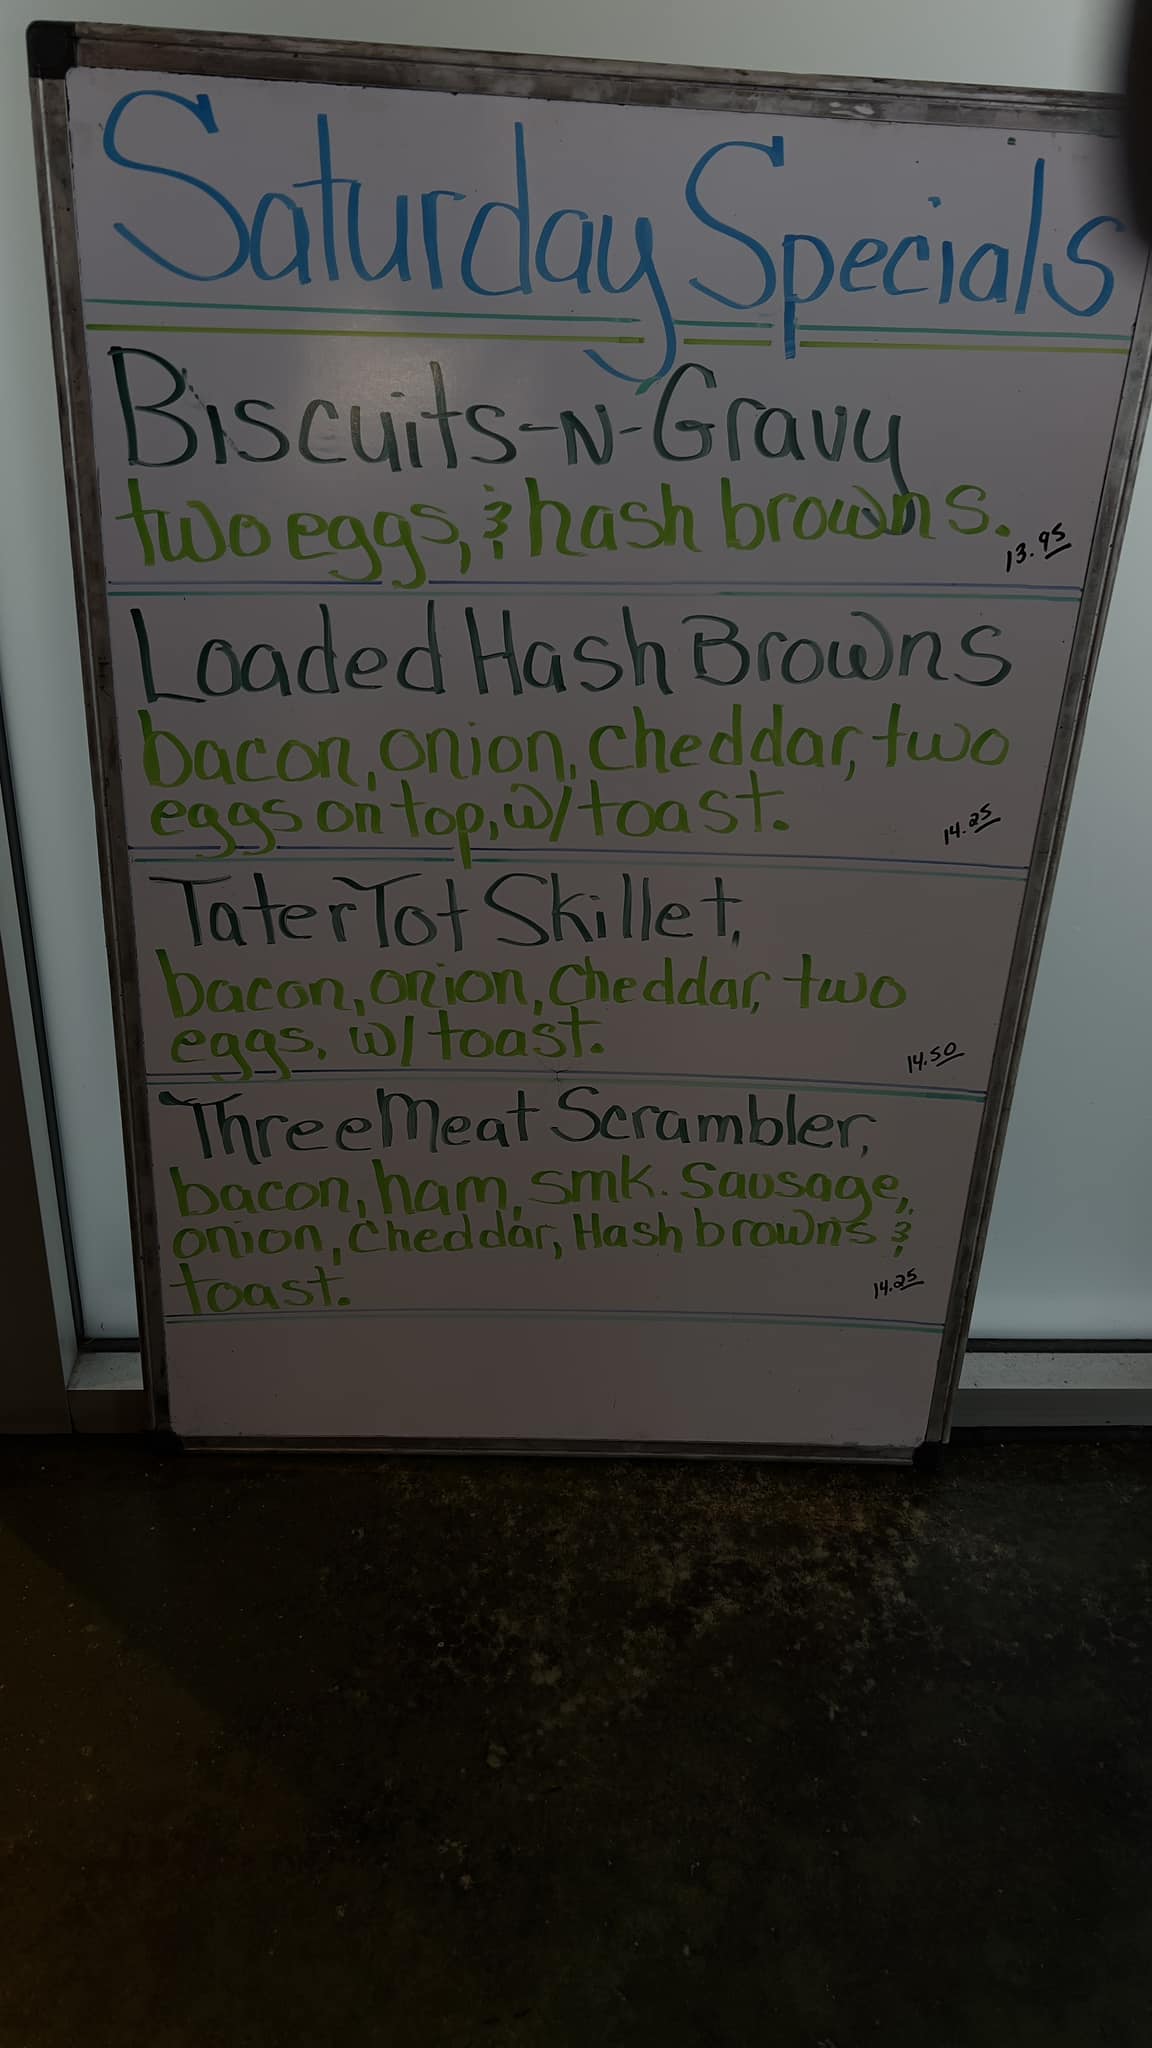 Saturday Specials
Biscuits-N-Gravy
two eggs, & hash browns.
13.95
Loaded Hash Browns
bacon, onion, cheddar, two
eggs on top, w/ toast.
14.25
Tater Tot Skillet,
bacon, onion, cheddar, two
eggs, w/ toast.
14.50
Three Meat Scrambler,
bacon, ham, smk. Sausage,
onion, cheddar, Hash browns &
toast.
14.25